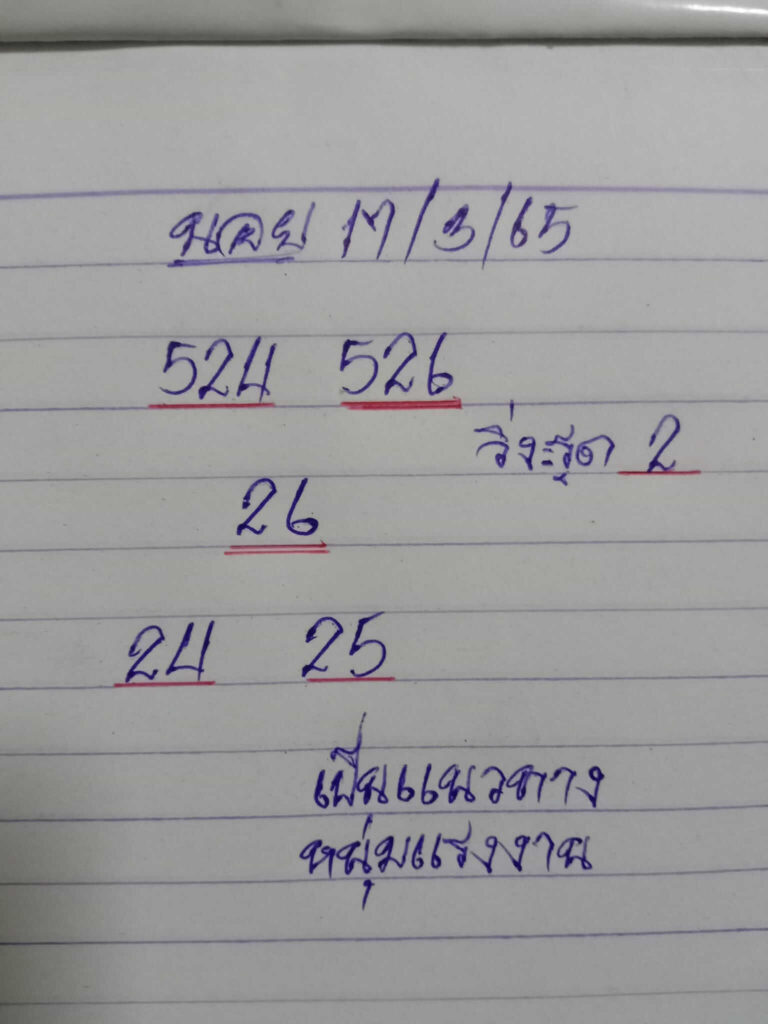 นอย 17/3/65
524 526
วิ่งรูด 2
26
24 25
เป็นแนวทาง
หนุ่มแรงงาน